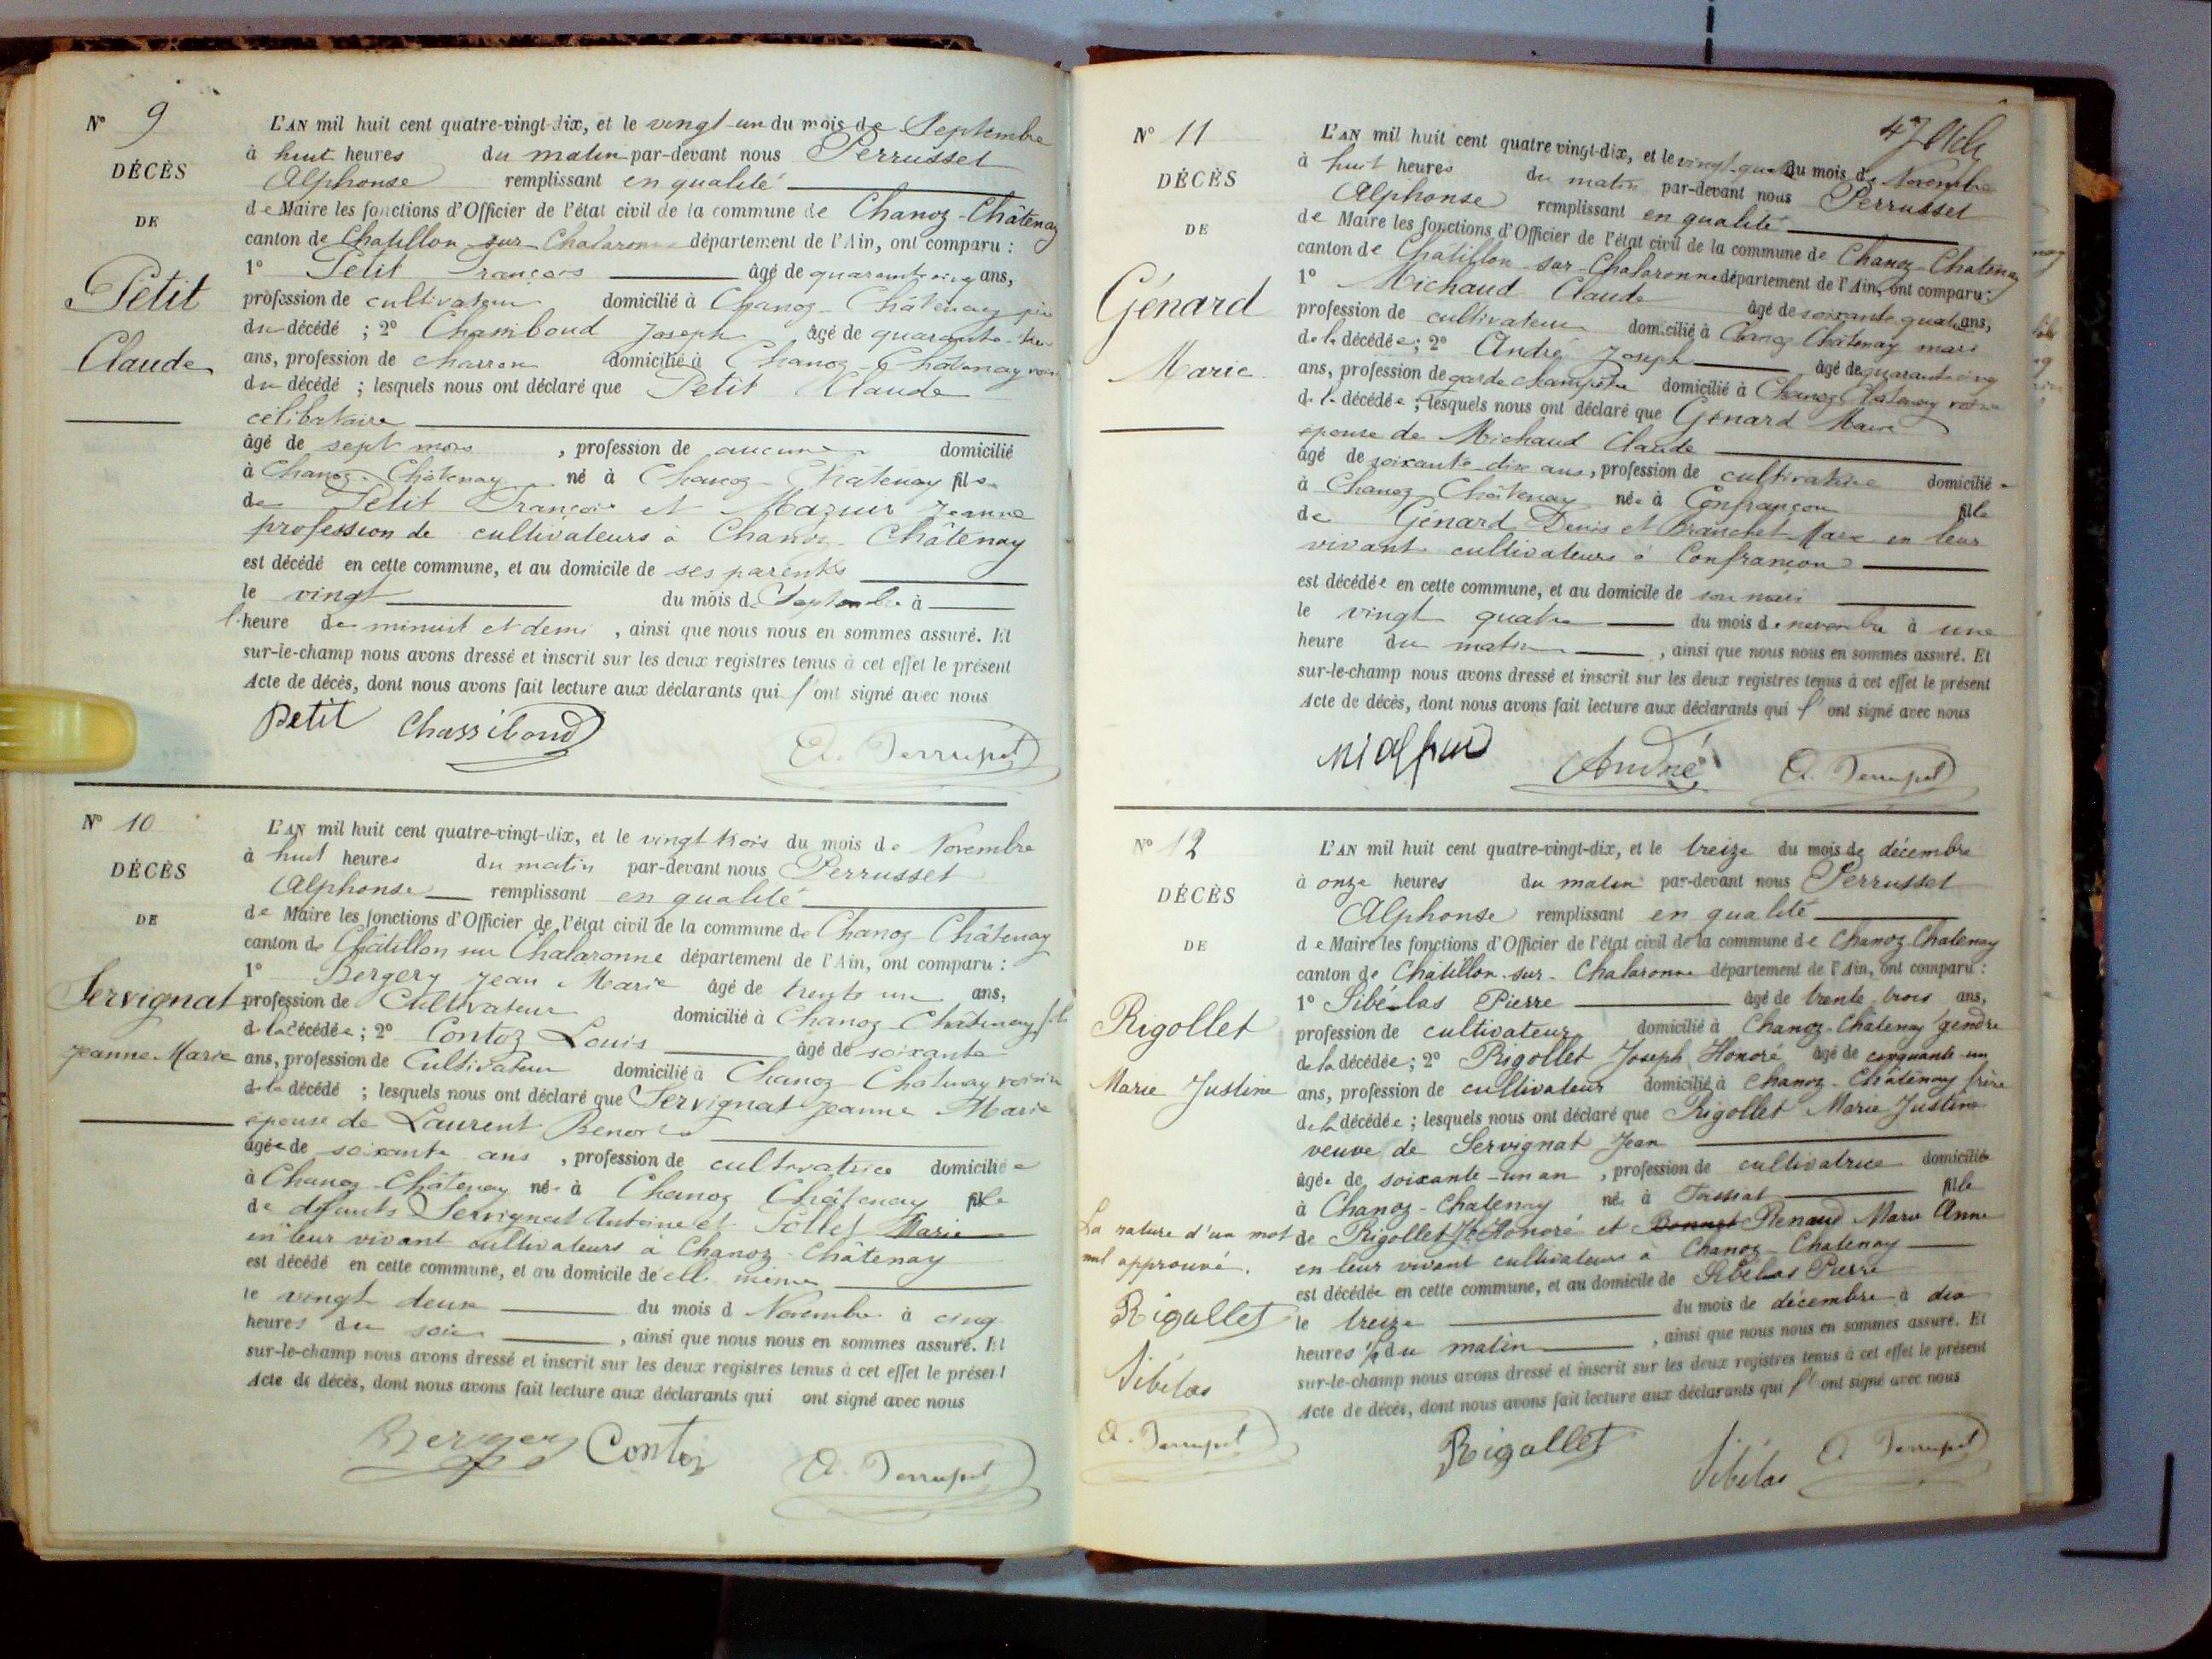 N° 9
DÉCÈS
DE
Petit
Claude
L'AN mil huit cent quatre-vingt-dix, et le vingt-un du mois de Septembre
à huit heures du matin par-devant nous Perrusset
Alphonse remplissant en qualité
de Maire les fonctions d'Officier de l'état civil de la commune de Chanoz-Châtenay
canton de Chatillon sur Chalaronne département de l'Ain, ont comparu :
1° Petit François âgé de quarante cinq ans,
profession de cultivateur domicilié à Chanoz-Châtenay père
du décédé ; 2° Chamboud Joseph âgé de quarante-
ans, profession de charron domicilié à Chanoz Châtenay voisin
du décédé ; lesquels nous ont déclaré que Petit Claude
célibataire
âgé de sept mois , profession de aucune domicilié
à Chanoz-Châtenay né à Chanoz-Châtenay fils
de Petit François et Mazuir Jeanne
profession de cultivateurs à Chanoz-Châtenay
est décédé en cette commune, et au domicile de ses parents
le vingt du mois de Septembre à
l'heure de minuit et demi , ainsi que nous nous en sommes assuré. Et
sur-le-champ nous avons dressé et inscrit sur les deux registres tenus à cet effet le présent
Acte de décès, dont nous avons fait lecture aux déclarants qui l'ont signé avec nous
Petit A. Perrusset
N° 10
DÉCÈS
DE
Servignat
Jeanne Marie
L'AN mil huit cent quatre-vingt-dix, et le vingt trois du mois de Novembre
à huit heures du matin par-devant nous Perrusset
Alphonse remplissant en qualité
de Maire les fonctions d'Officier de l'état civil de la commune de Chanoz-Châtenay
canton de Châtillon sur Chalaronne département de l'Ain, ont comparu :
1° Bergery Jean Marie âgé de trente un ans,
profession de Cultivateur domicilié à Chanoz-Châtenay
de la décédée ; 2° Contoz Louis âgé de soixante
ans, profession de Cultivateur domicilié à Chanoz-Chatenay voisin
de la décédé ; lesquels nous ont déclaré que Servignat Jeanne Marie
épouse de Laurent Benoit
âgée de soixante ans , profession de cultivatrice domiciliée
à Chanoz-Châtenay née à Chanoz Châtenay fille
de défunts Servignat Antoine et Marie
en leur vivant cultivateurs à Chanoz-Châtenay
est décédé en cette commune, et au domicile de elle même
le vingt deux du mois d Novembre à cinq
heures du soir , ainsi que nous nous en sommes assuré. Et
sur-le-champ nous avons dressé et inscrit sur les deux registres tenus à cet effet le présent
Acte de décès, dont nous avons fait lecture aux déclarants qui ont signé avec nous
Bergery Contoz A. Perrusset
47
N° 11
DÉCÈS
DE
Génard
Marie
L'AN mil huit cent quatre vingt-dix, et le vingt-quatre du mois de Novembre
à huit heures du matin par-devant nous Perrusset
Alphonse remplissant en qualité
de Maire les fonctions d'Officier de l'état civil de la commune de Chanoz-Chatenay
canton de Châtillon-sur-Chalaronne département de l'Ain, ont comparu :
1° Michaud Claude âgé de soixante quatre ans,
profession de cultivateur domicilié à Chanoz Châtenay mari
de la décédée ; 2° André Joseph âgé de quarante cinq
ans, profession de garde champêtre domicilié à Chanoz Chatenay voisin
de la décédée ; lesquels nous ont déclaré que Génard Marie
épouse de Michaud Claude
âgé de soixante-dix ans, profession de cultivatrice domiciliée
à Chanoz Châtenay née à Confrançon fille
de Génard Denis et Branchet Marie en leur
vivant cultivateurs à Confrançon
est décédée en cette commune, et au domicile de son mari
le vingt quatre du mois de novembre à une
heure du matin , ainsi que nous nous en sommes assuré. Et
sur-le-champ nous avons dressé et inscrit sur les deux registres tenus à cet effet le présent
Acte de décès, dont nous avons fait lecture aux déclarants qui l'ont signé avec nous
André A. Perrusset
N° 12
DÉCÈS
DE
Rigollet
Marie Justine
L'AN mil huit cent quatre-vingt-dix, et le treize du mois de décembre
à onze heures du matin par-devant nous Perrusset
Alphonse remplissant en qualité
de Maire les fonctions d'Officier de l'état civil de la commune de Chanoz Chatenay
canton de Châtillon-sur-Chalaronne département de l'Ain, ont comparu :
1° Sibélas Pierre âgé de trente trois ans,
profession de cultivateur domicilié à Chanoz-Châtenay gendre
de la décédée ; 2° Rigollet Joseph Honoré âgé de cinquante-un
ans, profession de cultivateur domicilié à Chanoz-Châtenay frère
de la décédée ; lesquels nous ont déclaré que Rigollet Marie Justine
veuve de Servignat Jean
âgée de soixante-un an , profession de cultivatrice domiciliée
à Chanoz-Chatenay née à fille
de Rigollet Jh Honoré et Bonnet Renaud Marie Anne
en leur vivant cultivateurs à Chanoz-Chatenay
est décédée en cette commune, et au domicile de Sibélas Pierre
le treize du mois de décembre à dix
heures ½ du matin , ainsi que nous nous en sommes assuré. Et
sur-le-champ nous avons dressé et inscrit sur les deux registres tenus à cet effet le présent
Acte de décès, dont nous avons fait lecture aux déclarants qui l'ont signé avec nous
La rature d'un mot
nul approuvé.
Rigollet
Sibélas
A. Perrusset
Rigollet Sibélas A. Perrusset